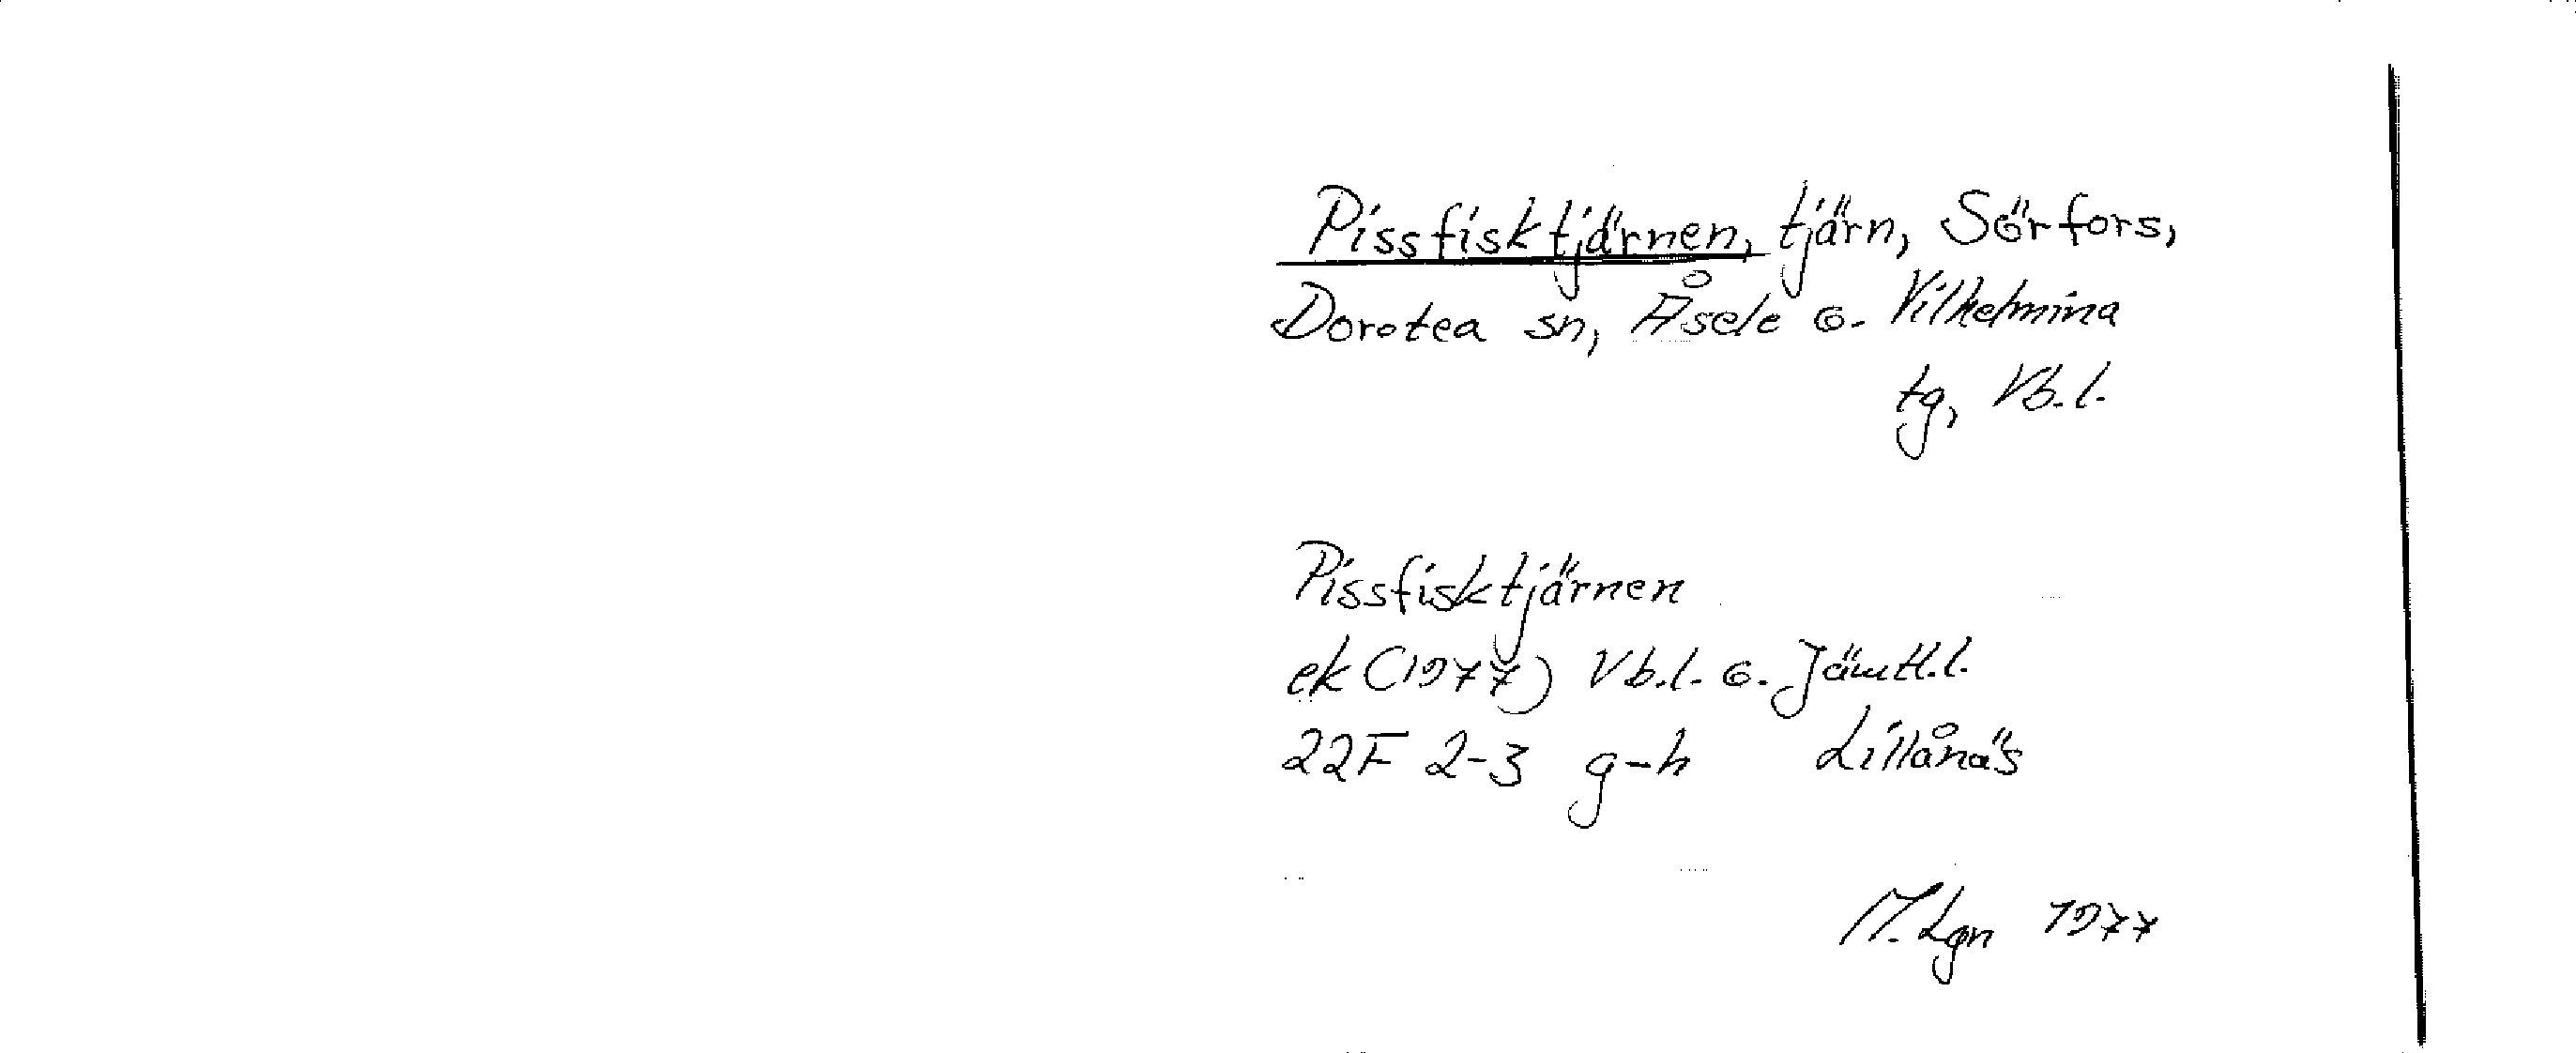 Pissfisktjärnen, tjärn, Sörfors,
Dorotea sn, Åsele o. Vilhelmina
tg, Vb.l.
Pissfisktjärnen
ek (1977) Vb.l. o. Jämtl.l.
22F 2-3 g-h Lillånäs
M. Lgn 1977